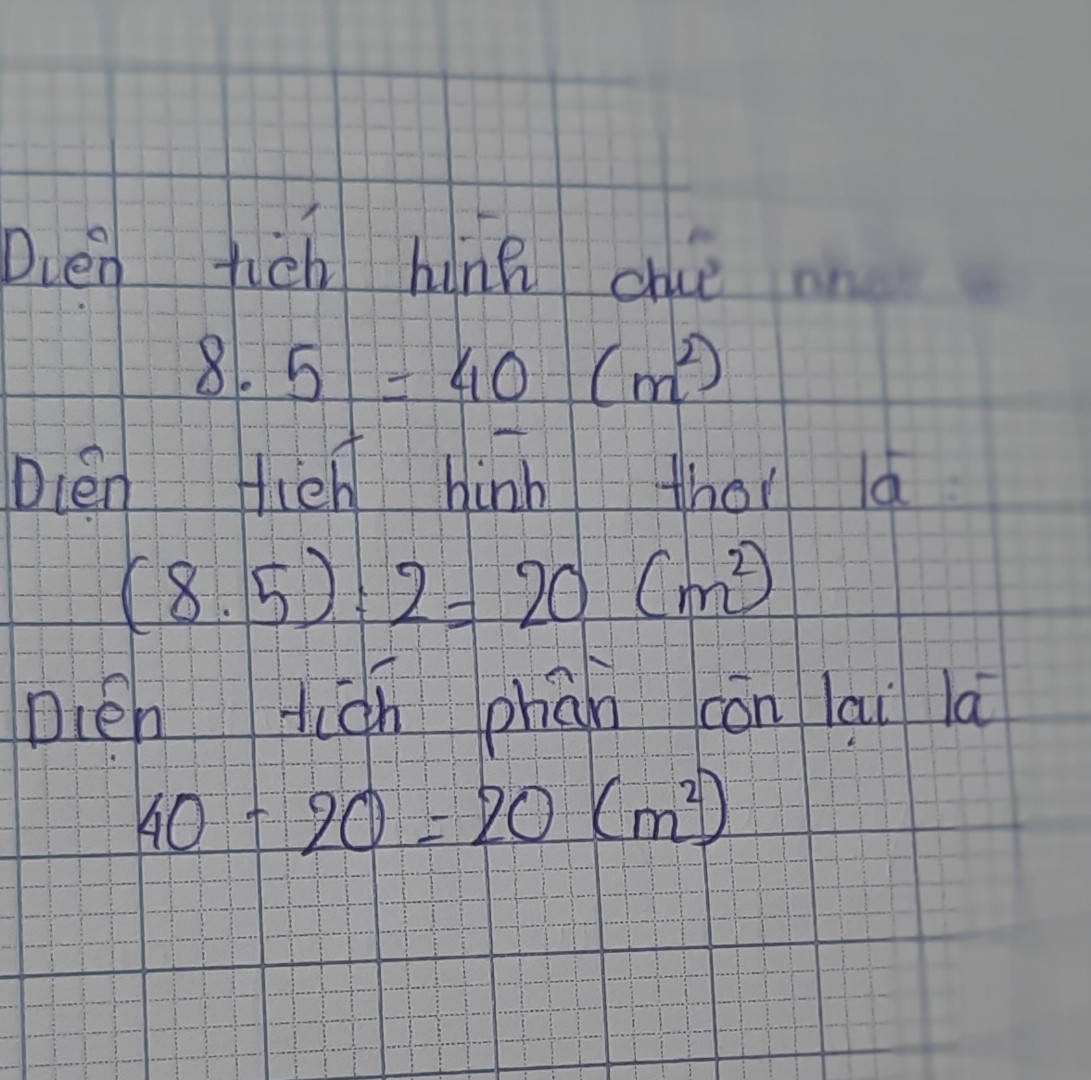 Diện tích hình chữ
8.5 = 40 (m²)
Diện tích hình thoi là:
(8.5):2 = 20 (m²)
Diện tích phần còn lại là
40 - 20 = 20 (m²)